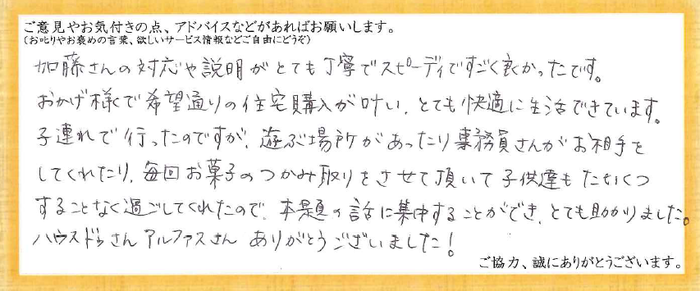 ご意見やお気付きの点、アドバイスなどがあればお願いします。
(お叱りやお褒めの言葉、欲しいサービス情報などご自由にどうぞ)
加藤さんの対応や説明がとても丁寧でスピーディですごく良かったです。
おかげ様で希望通りの住宅購入が叶い、とても快適に生活できています。
子連れで行ったのですが、遊ぶ場所があったり事務員さんがお相手を
してくれたり、毎回お菓子のつかみ取りをさせて頂いて子供達もたいくつ
することなく過ごしてくれたので、本題の話に集中することができ、とても助かりました。
ハウスドゥさん アルファスさん ありがとうございました!
ご協力、誠にありがとうございます。